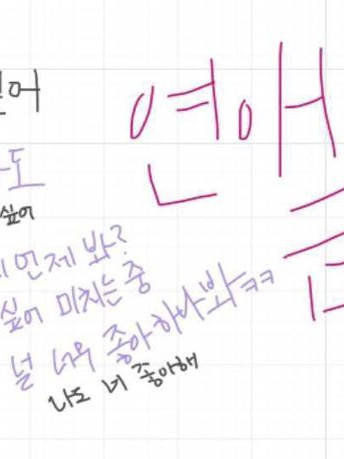 연애
싶어
언제 봐?
싶어 미치는중
널 너무 좋아하나봐ㅋㅋ
나도 너 좋아해